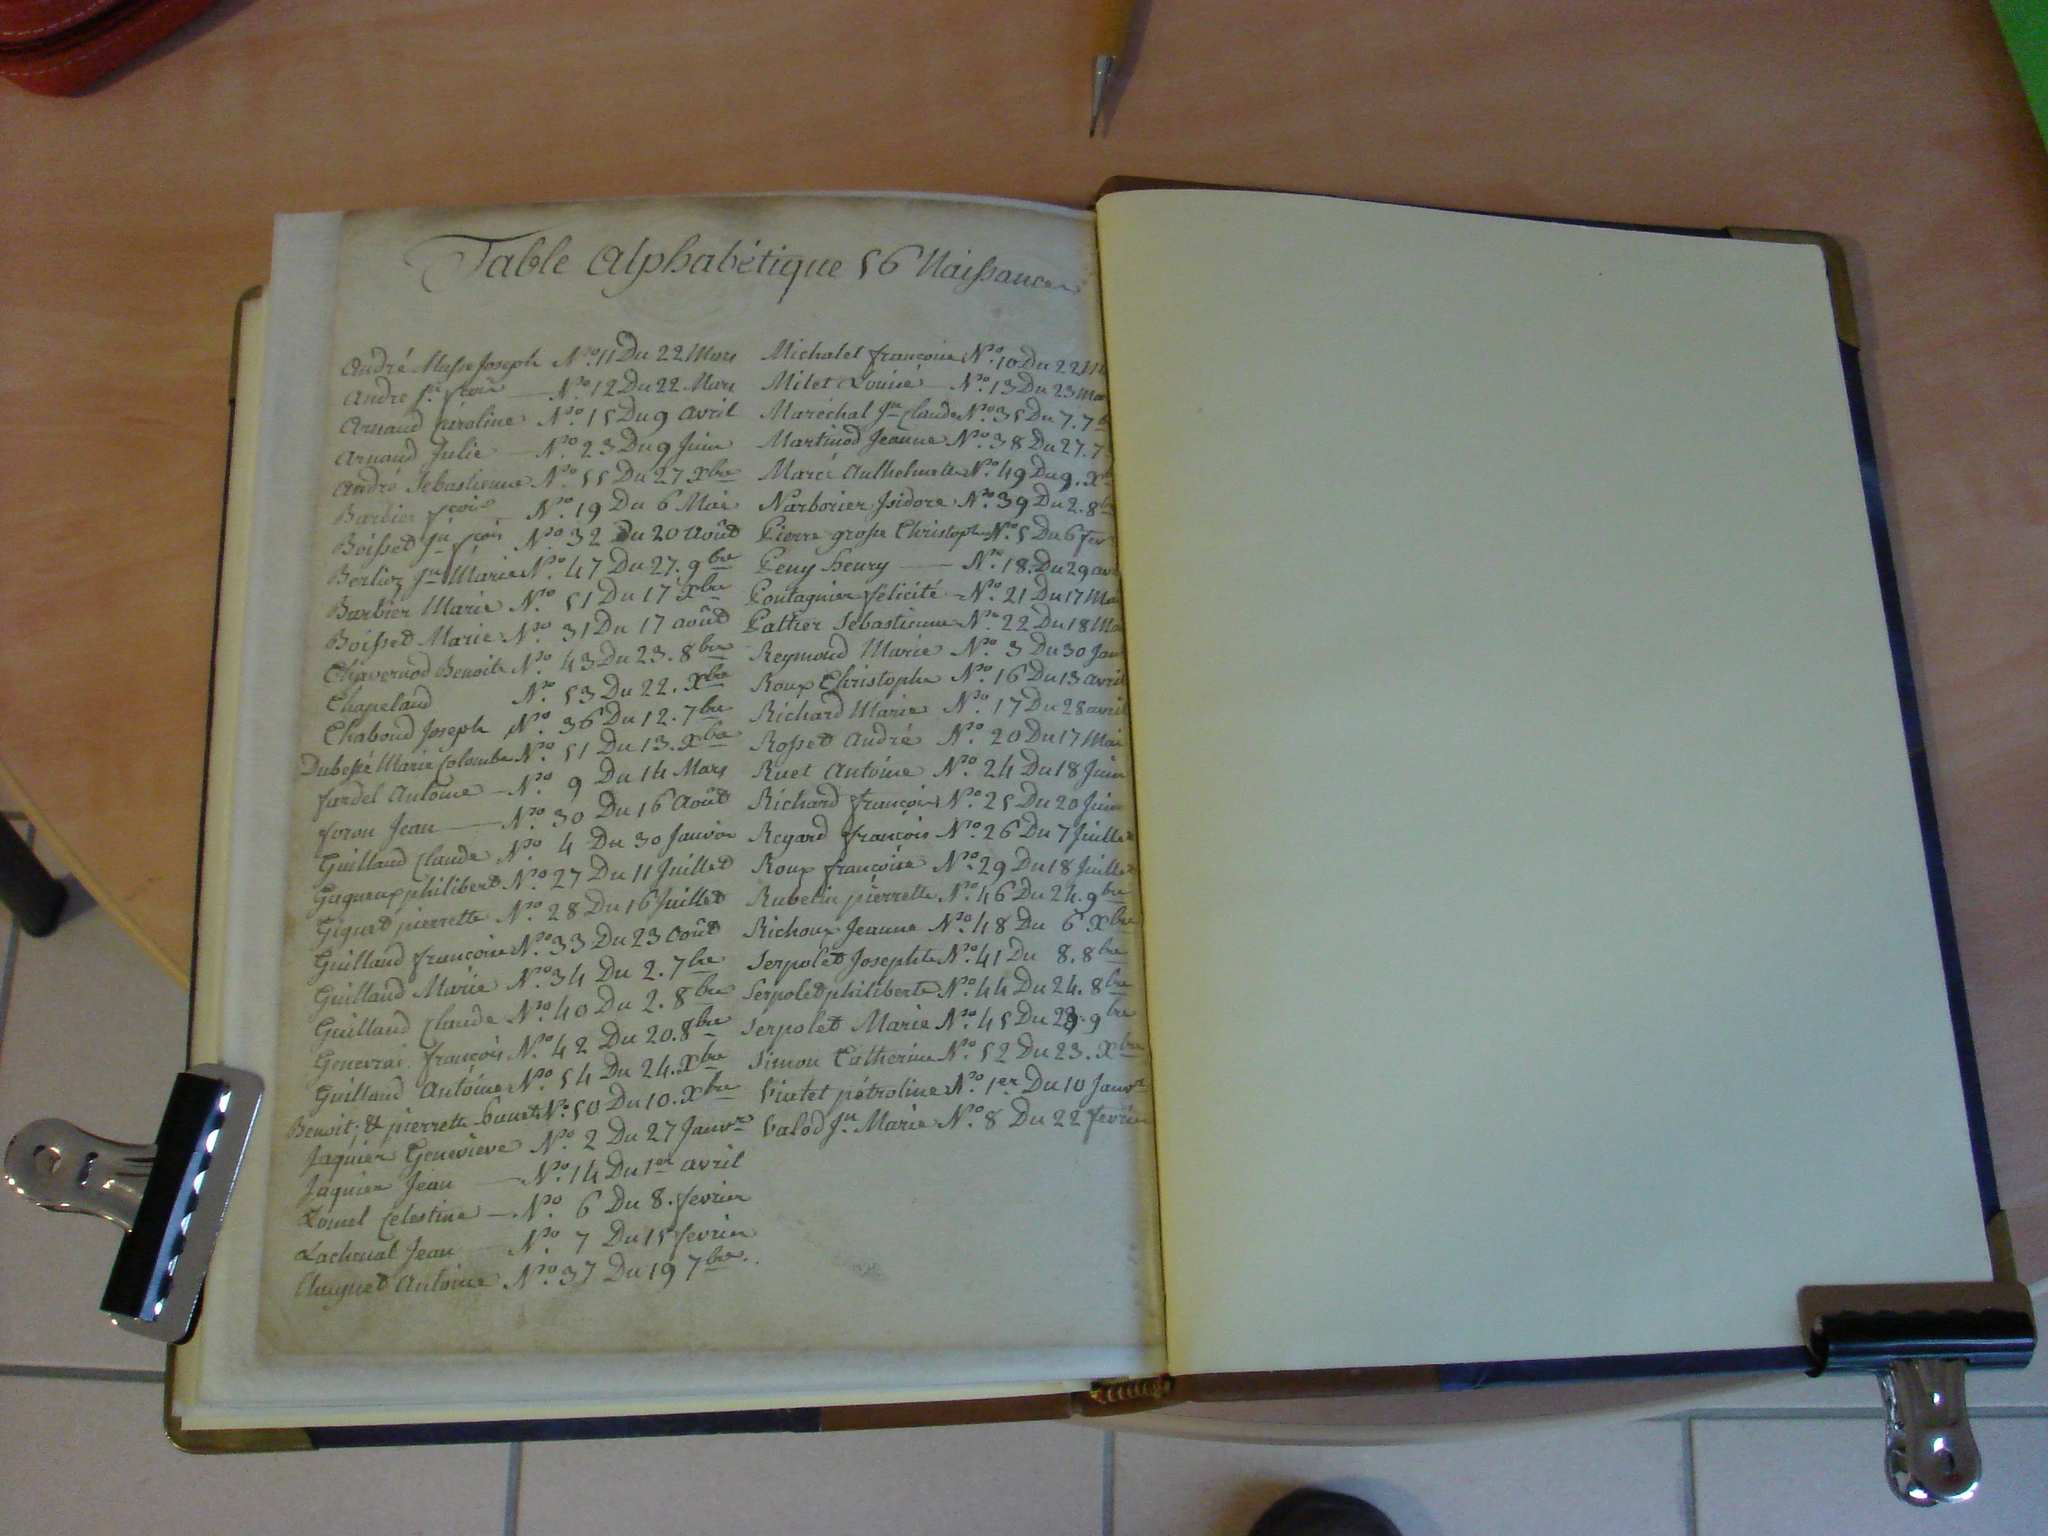 Table Alphabétique 56 Naissances
André Masse Joseph N.ro 11 Du 22 Mars
André f.s N.ro 12 Du 22 Mars
Arnaud péroline N.ro 15 Du 9 avril
Arnaud Julie N.ro 23 Du 9 Juin
André Sebastienne N.ro 55 Du 27 Xbre
Barbier fçois N.ro 19 Du 6 Mai
Boisset Jn fçois N.ro 32 Du 20 août
Berlioz Jn Marie N.ro 47 Du 27. 9bre
Barbier Marie N.ro 51 Du 17 Xbre
Boisset Marie N.ro 31 Du 17 août
Chavernod Benoite N.ro 43 Du 23. 8bre
Chapeland N.ro 53 Du 22. Xbre
Chaboud Joseph N.ro 36 Du 12. 7bre
Dubessé Marie Colombe N.ro 51 Du 13. Xbre
fardel Antoine N.ro 9 Du 14 Mars
févron Jean N.ro 30 Du 16 Août
Guilland Claude N.ro 4 Du 30 Janvier
Gugneux philibert N.ro 27 Du 11 Juillet
Giguet pierrette N.ro 28 Du 16 Juillet
Guilland françoise N.ro 33 Du 23 Août
Guilland Marie N.ro 34 Du 2. 7bre
Guilland Claude N.ro 40 Du 2. 8bre
Genevrai françois N.ro 42 Du 20. 8bre
Guilland Antoine N.ro 54 Du 24. Xbre
Benoit & pierrette N.ro 50 Du 10. Xbre
Jaquier Geneviève N.ro 2 Du 27 Janv.r
Jaquier Jean N.ro 14 Du 1er avril
Lomel Celestine N.ro 6 Du 8. fevrier
Lachenal Jean N.ro 7 Du 15 fevrier
Antoine N.ro 37 Du 19 7bre.
Michalet françoise N.ro 10 Du 22
Milet Louise N.ro 13 Du 23
Maréchal Jn Claude N.ro 35 Du 7. 7
Martinod Jeanne N.ro 38 Du 27. 7
Marcé Anthelmette N.ro 49 Du 9. Xb
Narborier Isidore N.ro 39 Du 2. 8bre
Pierre grosse Christophe N.ro 5 Du 6 fev
Peny henry N.ro 18. Du 29 avr
Poutagnier félicité N.ro 21 Du 17 Ma
Pattier Sebastienne N.ro 22 Du 18 Ma
Reymond Marie N.ro 3 Du 30 Jan
Roux Christophe N.ro 16 Du 13 avril
Richard Marie N.ro 17 Du 28 avril
Rosset André N.ro 20 Du 17 Mai
Ruet Antoine N.ro 24 Du 18 Juin
Richard françois N.ro 25 Du 20 Juin
Regard françois N.ro 26 Du 7 Juillet
Roux françoise N.ro 29 Du 18 Juillet
Rubelin pierrette N.ro 46 Du 24. 9bre
Richoux Jeanne N.ro 48 Du 6 Xbre
Serpolet Josephte N.ro 41 Du 8. 8bre
Serpolet philiberte N.ro 44 Du 24. 8bre
Serpolet Marie N.ro 45 Du 9bre
Simon Catherine N.ro 52 Du 23. Xbre
Vintet pétroline N.ro 1er Du 10 Janv.r
Valod Jn Marie N.ro 8 Du 22 fevrier